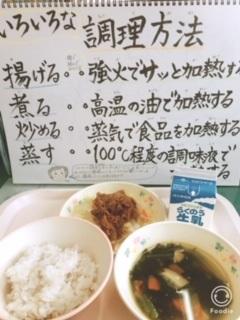 いろいろな 調理方法
揚げる・・強火でサッと加熱する
煮る・・高温の油で加熱する
炒める・・蒸気で食品を加熱する
蒸す・・100℃程度の調味液で
する
らくのう
牛乳
Foodie